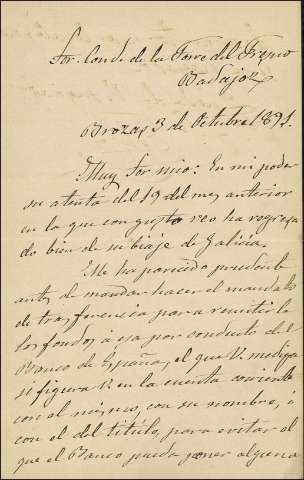 Sor. Conde de la Torre del Fresno
Badajoz,
Brozas, 3 de Octubre 1891.
Muy Sor mio: En mi poder
su atenta del 19 del mes anterior
en la que con gusto veo ha regresa
do bien de su biaje de Galicia.
Me ha parecido prudente
antes de mandar hacer el mandato
de trasferencia para remitirle
los fondos a esa por conducto del
Banco de España, el que V. me diga
si figura V. en la cuenta coriente
con el mismo, con su nombre, ó
con el del título, para evitar el
que el Banco pueda poner alguna